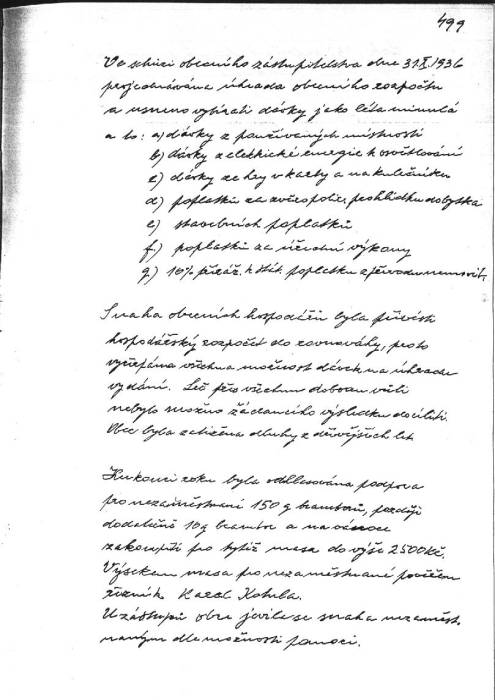 499
Ve schůzi obecního zastupitelstva dne 31.X.1936
projednávána úhrada obecního rozpočtu
a usneseno vybírati dávky jako léta minulá
a to: a) dávky z používaných místností
b) dávky z elektrické energie k osvětlování
c) dávky ze hry v karty a na kulečníku
d) poplatků za zvěro polic. prohlídku dobytka
e) stavebních poplatků
f.) poplatků za úřední výkony
g.) 10% přiráž. k stát. poplatku z převodu nemovit.
Snaha obecních hospodářů byla přivésti
hospodářský rozpočet do rovnováhy, proto
vyčerpána všechna možnost dávek na úhradu
vydání. Leč přes všechnu dobrou vůli
nebylo možno žádoucího výsledku docíliti.
Obec byla zatížena dluhy z dřívějších let
Ku konci roku byla odhlasována podpora
pro nezaměstnané 150 q brambor, později
dodatečně 10 q brambor a na vánoce
zakoupiti pro tytéž masa do výše 2500 Kč.
Výsekem masa pro nezaměstnané pověřen
řezník Karel Kotrba.
U zástupců obce jevila se snaha nezaměst-
naným dle možnosti pomoci.